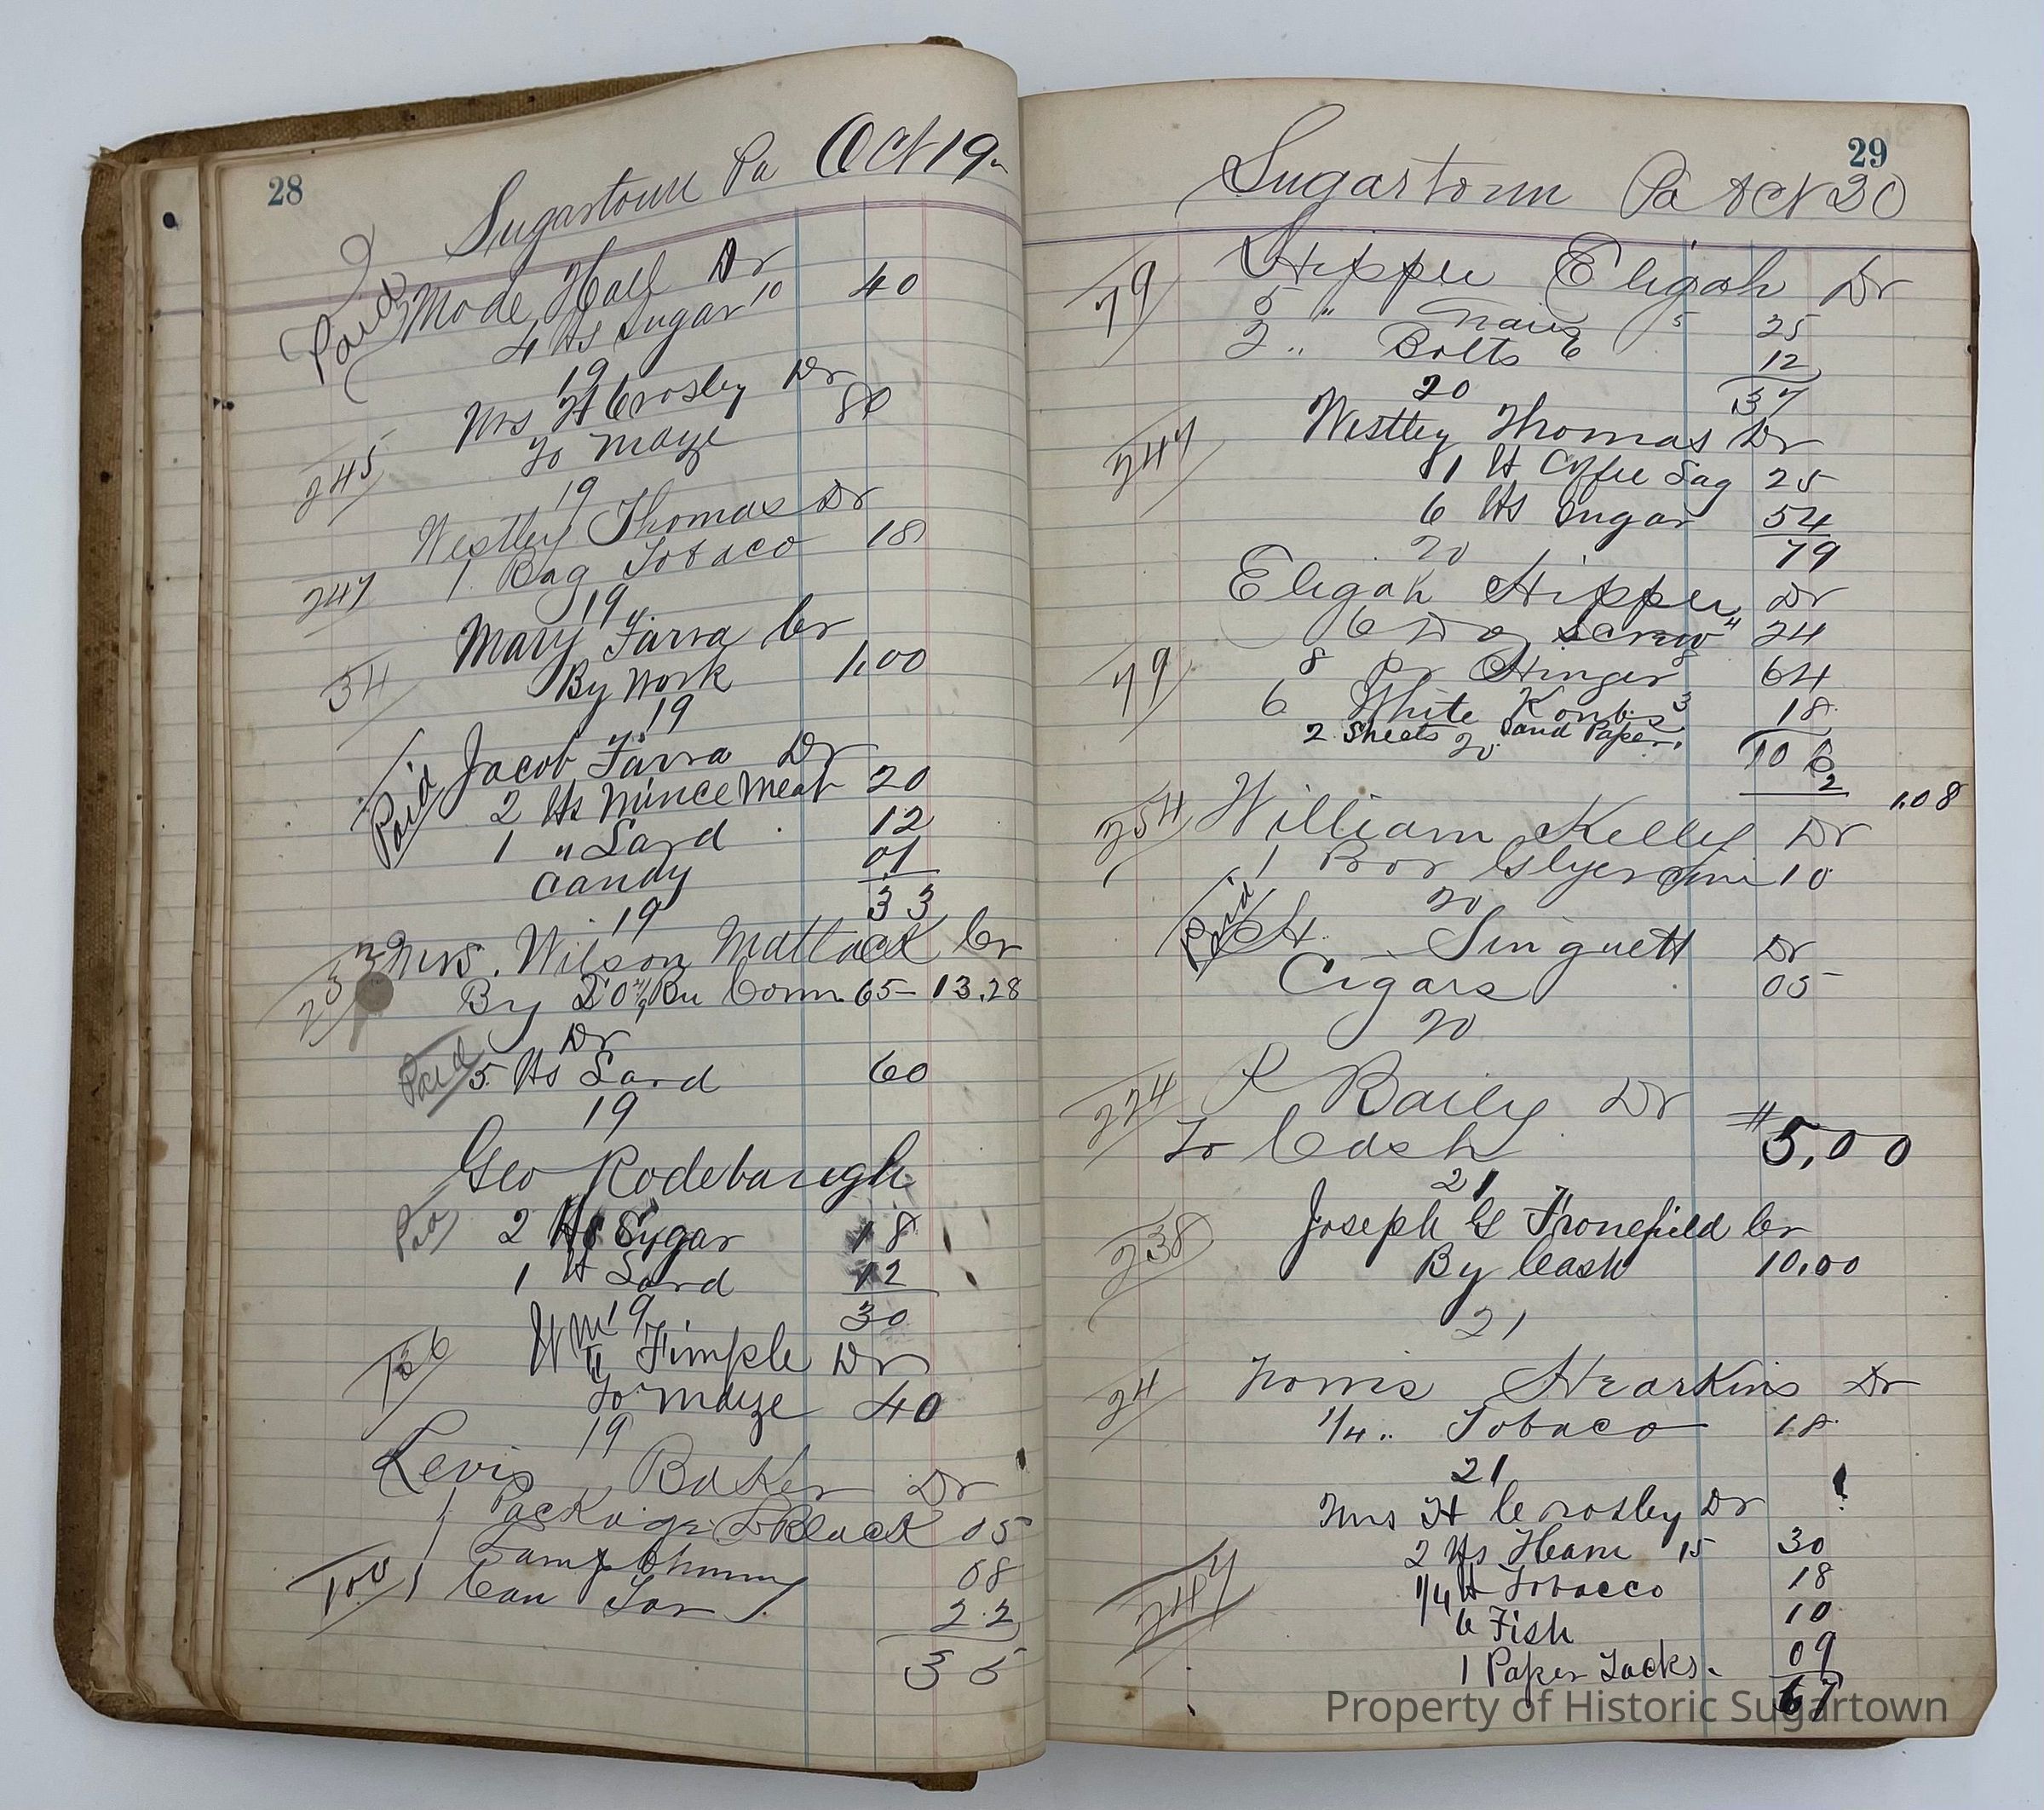 28
Sugartown Pa Oct 19
Paid Mode Hall Dr
4 lbs Sugar 10 40
19
Mrs H Crosley Dr
245 To Maize 80
19
Westley Thomas Dr
247 1 Bag Tobaco 18
19
Mary Farra Cr
34 By Work 1.00
19
Paid Jacob Farra Dr
2 lbs Mince Meat 20
1 " Lard 12
Candy 01
33
19
Mrs. Wilson Mattack Cr
233 By 20 Bu Corn 65 - 13.28
Dr
Paid 5 lbs Lard 60
19
Geo Rodebaugh
Pad 2 lbs Sugar 18
1 lb Lard 12
19 30
Wm Fimple Dr
To Maize 40
19
Levis Baker Dr
1 Package L Black 05
1 Lamp Chimny 08
100 1 Can Tar 22
35
29
Sugartown Pa Oct 20
79 Hippel Eligah Dr
5 " Nails 5 25
2 " Bolts 6 12
20 37
247 Westley Thomas Dr
1 lb Coffee Sag 25
6 lbs Sugar 54
20 79
Eligah Hippel Dr
6 Doz Screw 4 24
79 8 Pr Hinges 8 64
6 White Konbs 3 18
2 Sheets Sand Paper.
20 106
2
1.08
254 William Kelly Dr
1 Box Glycerine 10
20
Paid H. Singuett Dr
Cigars 05
20
224 R Baily Dr
To Cash $5,00
21
238 Joseph G Fronefield Cr
By Cash 10.00
21
24 Norris Hearkins Dr
1/4 " Tobaco 18
21
Mrs H Crosley Dr
2 lbs Ham 15 30
247 1/4 lb Tobacco 18
6 Fish 10
1 Paper Tacks. 09
67
Property of Historic Sugartown